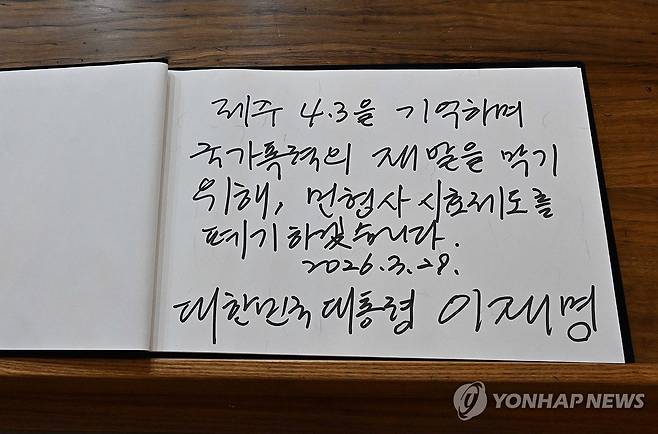 제주 4.3을 기억하며
국가폭력의 재발을 막기
위해, 민형사 시효제도를
폐기하겠습니다.
2026.3.29.
대한민국 대통령 이재명
YONHAP NEWS